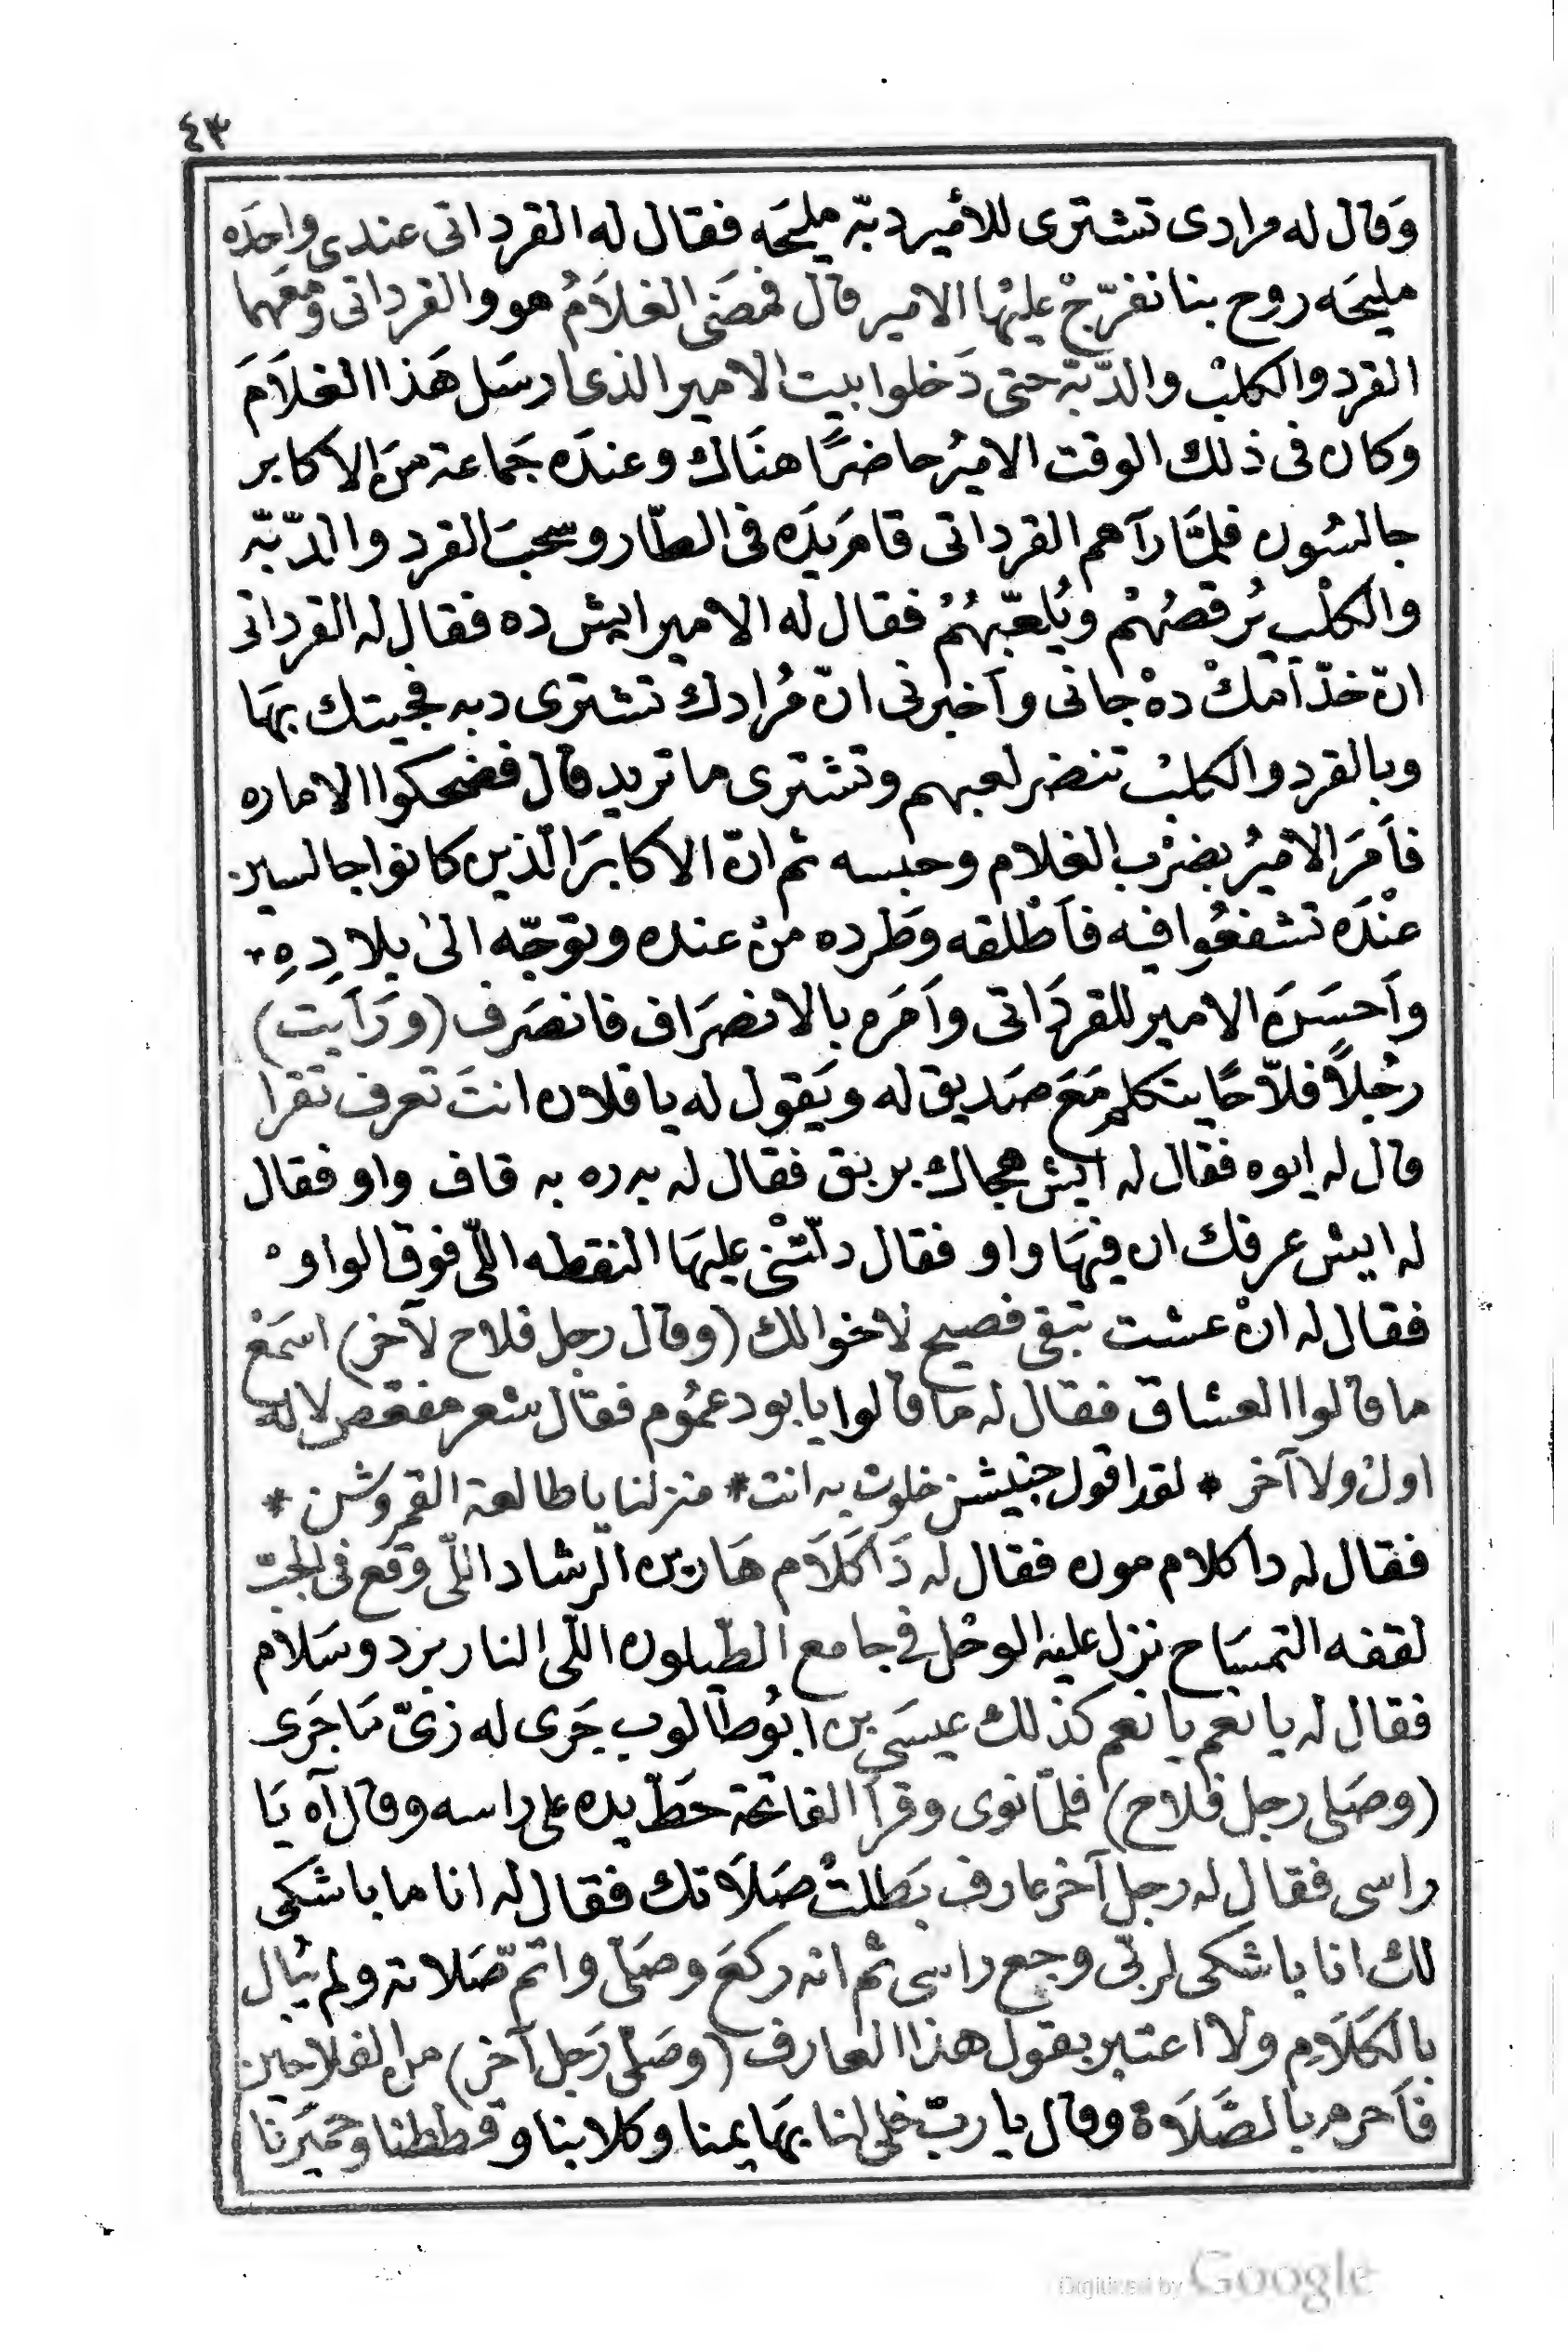 ٤٣
وَقال له مرادى تشترى للأمير دبّه مليحَه فقال له القرداتى عندى واحِدَه
مليحَه روح بنا نفرّجْ عليْها الامير قال فمضَى الغلاَمُ هو والقرداتى ومَعَهما
القرد والكلبْ والدّبّة حتى دَخلوا بيت الامير الذى ارسَل هَذا الغلاَمَ
وكان فى ذلك الوقت الاميرُ حاضرًا هنَاك وعندَه جَماعة منَ الاكابر
جالسُون فلمَّا رآهم القرداتى قام يَدَه فى الطّار وسحبَ القرد والدّبّه
والكلْب يُرقصُهُمْ ويُلعّبهُمُ فقال له الامير ايش ده فقال له القرداتى
انّ خدّامَكْ دهْ جانى وآخبرنى انّ مُرادك تشترى دبه فجيتك بهَا
وبالقرد والكلبْ تنضر لعبهم وتشترى ما تريد قال فضحكوا الاماره
فأمَرَ الاميرُ بضرْب الغلام وحبسه ثم انّ الاكابرَ الّذين كانوا جالسين
عنْدَه تشفعُوا فيه فاَطْلقه وَطرده منْ عنده وتوجّه الىٰ بلادِهِ
وأحسَنَ الامير للقردَاتى وأمَره بالانصرَاف فانصَرف (ورَأيت)
رجُلاً فلاّحًا يتكلم مَعَ صَديق له ويَقول له يا فلان انتَ تعرف تقرا
قال له ايوه فقال له ايش هجاك بربق فقال له به ره به قاف واو فقال
له ايش عرفك ان فيهَا واو فقال دلّتْنى عليهَا النقطه اللّى فوق الواو
فقال له انْ عشت تبقى فصيح لاخوالك (وقال رجل فلاح لآخر) اسمَعْ
ما قالوا العشاق فقال له ما قالوا يا بو دعمُوم فقال شعر مفقص لا له
اول ولا آخر * لقد اقول جنيشن خلوت به انت * منزلنا يا طالعة القمر وشن *
فقال له دا كلام مون فقال له دَا كَلاَم هَارين الّرشاد اللّى وقع فى الجبّ
لقفه التمسَاح نزل عليه الوحْل فى جامع الطّيلون اللّى النار برد وسَلام
فقال له يا نعم يا نعم كذلك عيسَى بن ابُوطالوب جَرى له زىّ مَا جَرى
(وصَلى رجل فلاح) فلمّا نوى وقرأ الفاتحة حَطّ يده على راسه وقال آه يَا
راسى فقال له رجل آخر عارف بَطلتْ صَلاَتك فقال له انا ما باشكى
لك انا باشكى لربّى وجع راسى ثم انه ركعَ وصَلّى واتمّ صَلاته ولم يُبال
بالكلاَمِ ولا اعتبر بقول هذا العارف (وصَلّى رَجل آخر) من الفلاحين
فأحرم بالصَّلاَة وقال يا ربّ خلى لنا بهَايمنا وكلابنا وقططنا وحَميرَنا
Digitized by Google